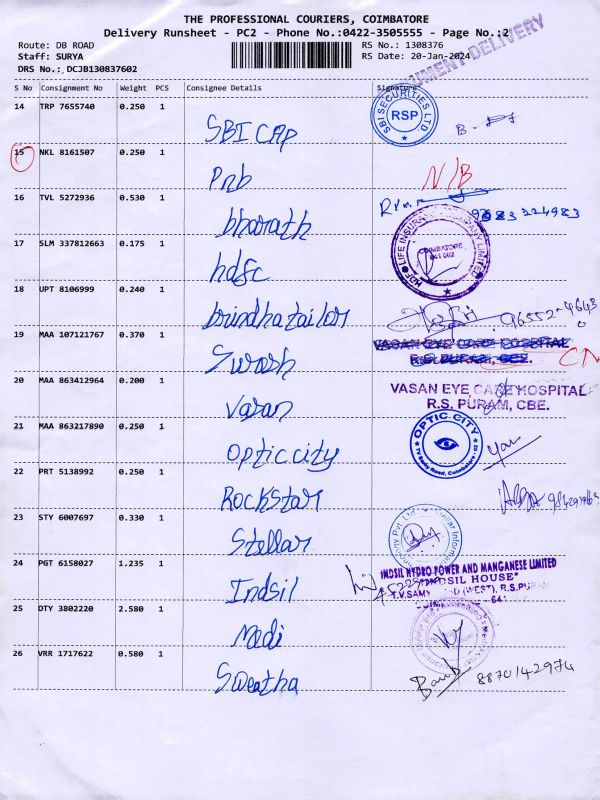 THE PROFESSIONAL COURIERS, COIMBATORE
Delivery Runsheet - PC2 - Phone No.:0422-3505555 - Page No.:2
Route: DB ROAD RS No.: 1308376
Staff: SURYA RS Date: 20-Jan-2024
DRS No.: DCJB130837602
UMENT DELIVERY
S No Consignment No Weight PCS Consignee Details Signature
14 TRP 7655740 0.250 1 SBI CAP
SBI SECURITIES LTD
RSP
15 NKL 8161507 0.250 1 Pnb N/B
16 TVL 5272936 0.530 1 bharath
17 SLM 337812663 0.175 1 hdfc
COIMBATORE
641 002
18 UPT 8106999 0.240 1 brindha tailor
19 MAA 107121767 0.370 1 Swash
VASAN EYE CARE HOSPITAL
R.S. PURAM, CBE.
20 MAA 863412964 0.200 1 Vasan
VASAN EYE CARE HOSPITAL
R.S. PURAM, CBE.
21 MAA 863217890 0.250 1 Optic city
OPTIC CITY
22 PRT 5138992 0.250 1 Rockstar
23 STY 6007697 0.330 1 Stellar
24 PGT 6158027 1,235 1 Indsil
INDSIL HYDRO POWER AND MANGANESE LIMITED
"INDSIL HOUSE"
25 DTY 3802220 2.580 1 Medi
26 VRR 1717622 0.580 1 Sweatha
8870142974